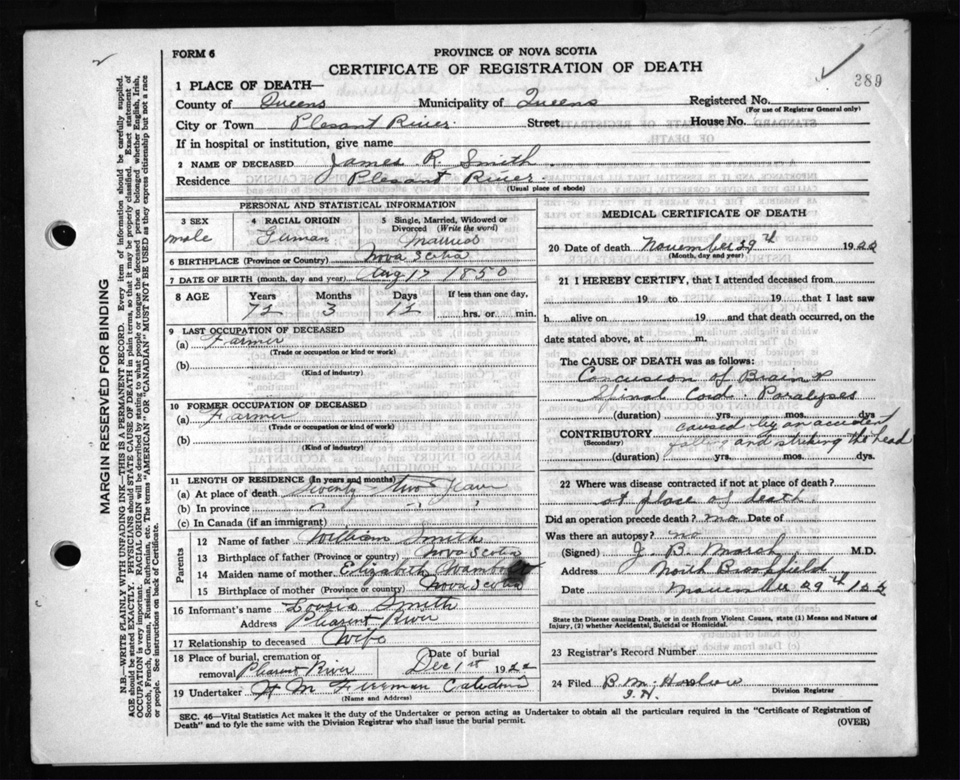 FORM 6
PROVINCE OF NOVA SCOTIA
CERTIFICATE OF REGISTRATION OF DEATH
389
1 PLACE OF DEATH—
County of Queens Municipality of Queens Registered No.
(For use of Registrar General only)
City or Town Plesant River. Street House No.
If in hospital or institution, give name
2 NAME OF DECEASED James R. Smith.
Residence Plesant River.
(Usual place of abode)
MARGIN RESERVED FOR BINDING
N.B.—WRITE PLAINLY WITH UNFADING INK—THIS IS A PERMANENT RECORD. Every item of information should be carefully supplied.
AGE should be stated EXACTLY. PHYSICIANS should STATE CAUSE OF DEATH in plain terms, so that it may be properly classified. Exact statement of
OCCUPATION is very important. RACIAL ORIGIN will be described by stating to what people or tongue the deceased person belonged, whether English, Irish,
Scotch, French, German, Russian, Ruthenian, etc. The terms "AMERICAN" or "CANADIAN" MUST NOT BE USED as they express citizenship but not a race
or people. See instructions on back of Certificate.
PERSONAL AND STATISTICAL INFORMATION
3 SEX
male
4 RACIAL ORIGIN
German
5 Single, Married, Widowed or
Divorced (Write the word)
Married
6 BIRTHPLACE (Province or Country) Nova Scotia
7 DATE OF BIRTH (month, day and year) Aug 17 1850
8 AGE
Years Months Days If less than one day,
72 3 12 hrs. or min.
9 LAST OCCUPATION OF DECEASED
(a) Farmer
(Trade or occupation or kind of work)
(b)
(Kind of industry)
10 FORMER OCCUPATION OF DECEASED
(a) Farmer
(Trade or occupation or kind of work)
(b)
(Kind of industry)
11 LENGTH OF RESIDENCE (In years and months)
(a) At place of death Seventy two years
(b) In province " " "
(c) In Canada (if an immigrant)
Parents
12 Name of father William Smith
13 Birthplace of father (Province or Country) Nova Scotia
14 Maiden name of mother Elizabeth Wambolt
15 Birthplace of mother (Province or Country) Nova Scotia
16 Informant's name Smith
Address Plesant River
17 Relationship to deceased Wife
18 Place of burial, cremation or
removal Plesant River
Date of burial
Dec 1st 1922
19 Undertaker H M Freeman Caledonia
(Name and Address)
MEDICAL CERTIFICATE OF DEATH
20 Date of death November 29th 1922
(Month, day and year)
21 I HEREBY CERTIFY, that I attended deceased from
19 to 19 that I last saw
h alive on 19 and that death occurred, on the
date stated above, at m.
The CAUSE OF DEATH was as follows:
Concusion of Brain &
Spinal Cord. Paralyses
(duration) yrs. mos. dys
CONTRIBUTORY caused by an accident
(Secondary) falling and striking the head
(duration) yrs. mos. dys.
22 Where was disease contracted if not at place of death?
at place of death.
Did an operation precede death? no Date of
Was there an autopsy? no
(Signed) J. B. Marsh M.D.
Address North Brookfield
Date November 29th 192
State the Disease causing Death, or in death from Violent Causes, state (1) Means and Nature of
Injury, (2) whether Accidental, Suicidal or Homicidal.
23 Registrar's Record Number
24 Filed B. M.
Division Registrar
SEC. 46—Vital Statistics Act makes it the duty of the Undertaker or person acting as Undertaker to obtain all the particulars required in the "Certificate of Registration of
Death" and to fyle the same with the Division Registrar who shall issue the burial permit.
(OVER)